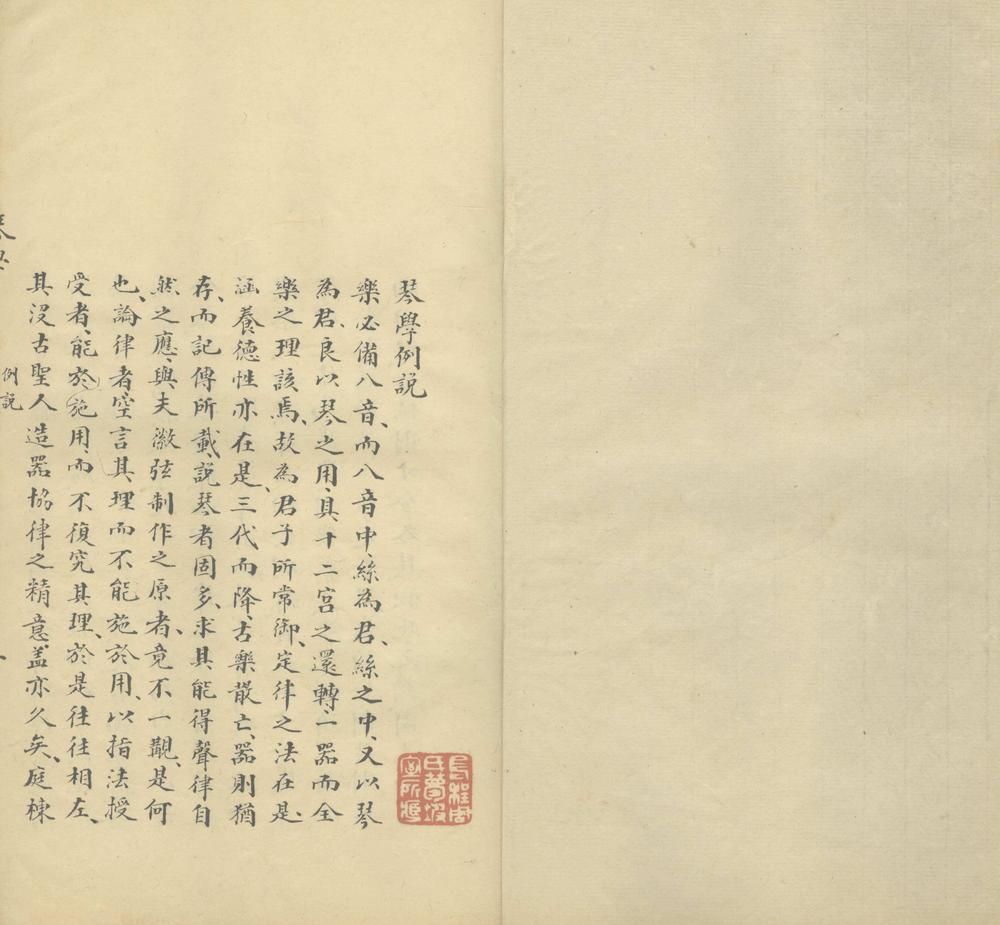 琴學例説
樂必備八音、而八音中、絲為君、絲之中、又以琴
為君、良以琴之用、具十二宮之還轉、一器而全
樂之理該焉、故為君子所常御、定律之法在是、
涵養德性亦在是、三代而降、古樂散亡、器則猶
存、而記傳所載、說琴者固多、求其能得聲律自
然之應、與夫徽弦制作之原者、竟不一覯、是何
也、論律者、空言其理而不能施於用、以指法授
受者、能於施用、而不復究其理、於是往往相左、
其没古聖人造器協律之精意、盖亦久矣、庭棟
琴學
例說
烏程周
氏夢坡
室所藏